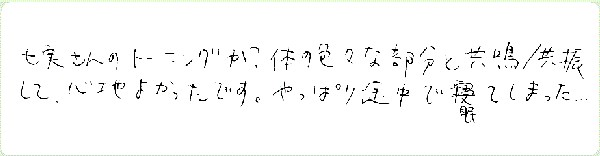 七実さんのトーニングが、体の色々な部分と共鳴/共振
して、心地よかったです。やっぱり途中で寝てしまった…
眠